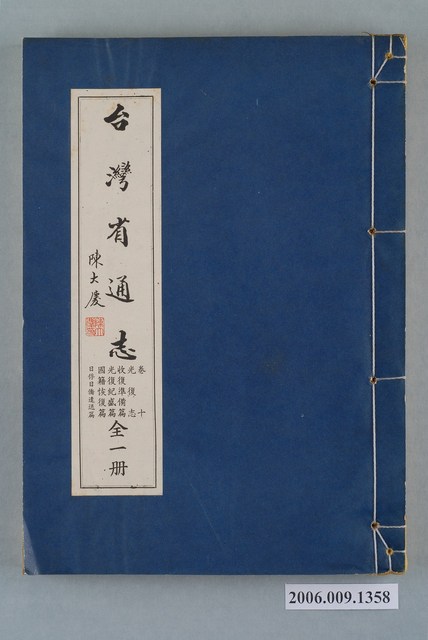 台灣省通志
卷十
光復志
收復準備篇
光復紀盛篇
國籍恢復篇
日俘日僑遣送篇
全一册
陳大慶
2006.009.1358